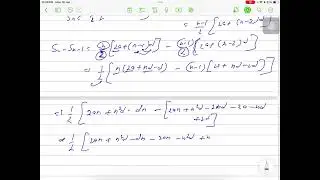 = n-1/2 [2a+(n-2)d]
Sn-Sn-1 = n/2 [2a+(n-1)d] - (n-1)/2 [2a+(n-2)d]
= 1/2 [n(2a+nd-d) - (n-1)[2a+nd-2d]
=> 1/2 [2an+n²d - dn - [2an+n²d-2nd-2a-nd
+2d]
=> 1/2 [2an+n²d-dn-2an-n²d+